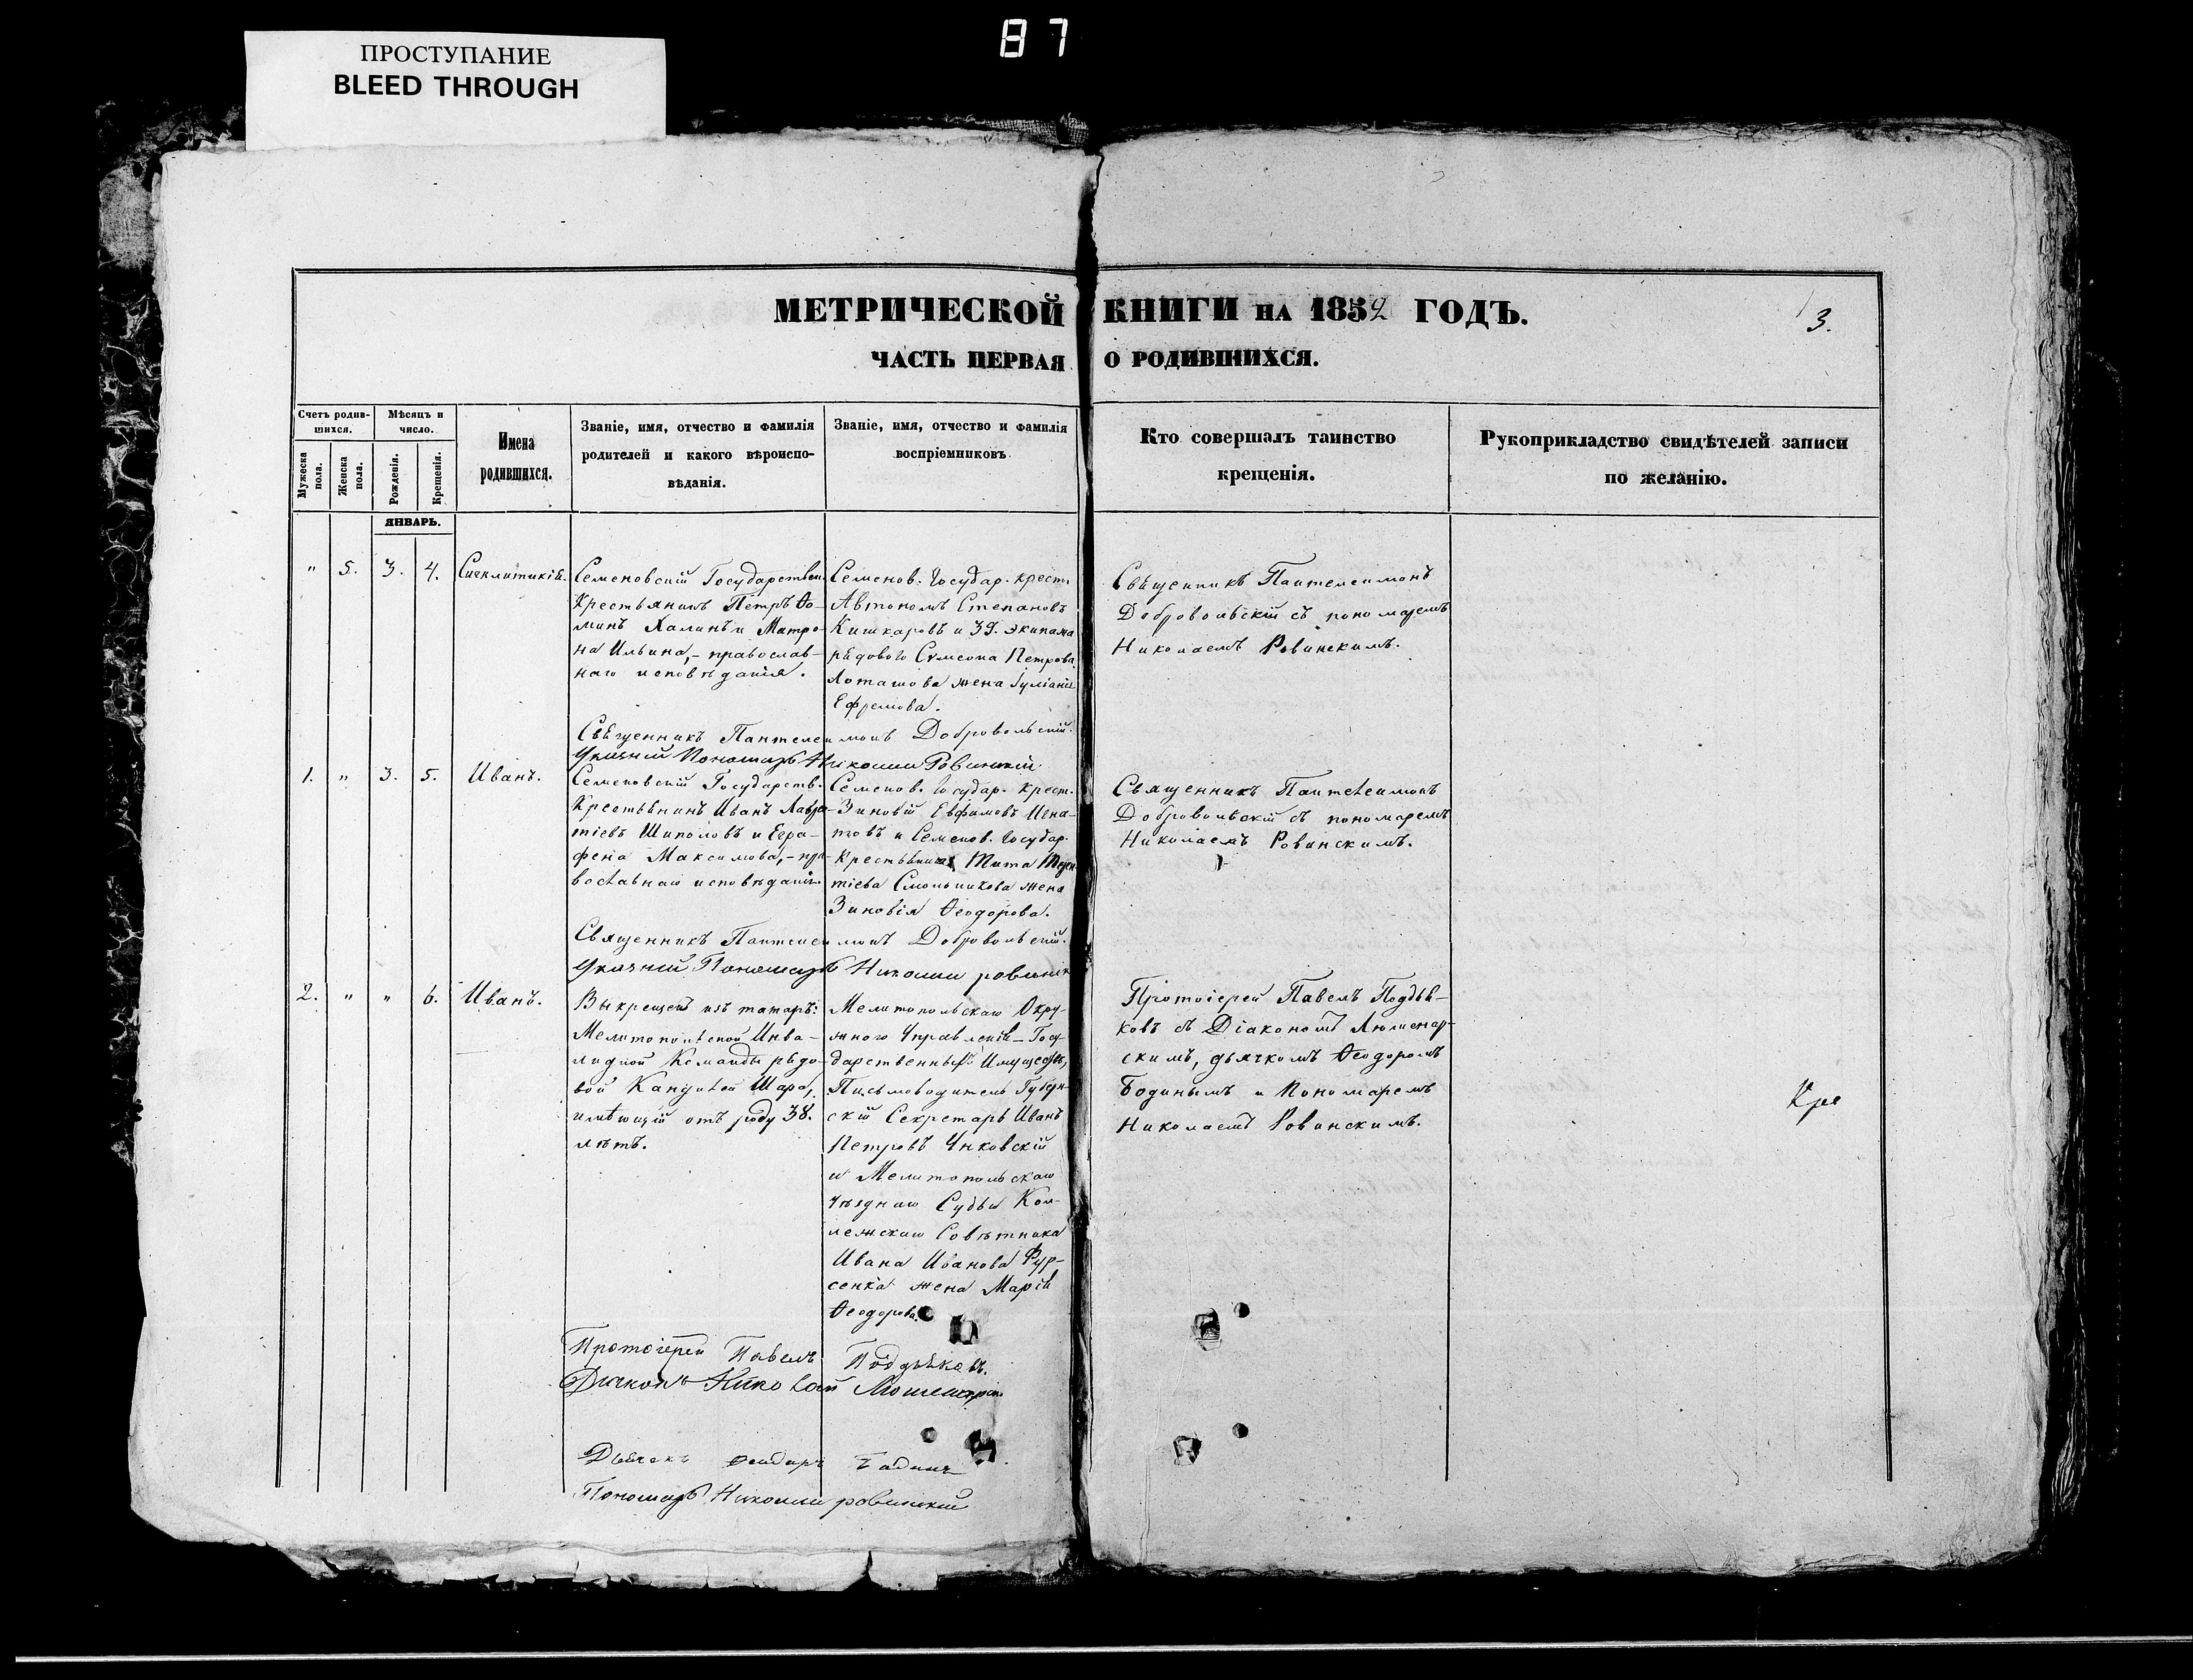 87
ПРОСТУПАНИЕ
BLEED THROUGH
МЕТРИЧЕСКОЙ КНИГИ НА 1852 ГОДЪ.
3.
ЧАСТЬ ПЕРВАЯ О РОДИВШИХСЯ.
Счетъ родив-
шихся.
Мужеска пола.
Женска пола.
Мѣсяцъ и
число.
Рожденія.
Крещенія.
Имена
родившихся.
Званіе, имя, отчество и фамилія
родителей и какого вѣроиспо-
вѣданія.
Званіе, имя, отчество и фамилія
воспріемниковъ.
Кто совершалъ таинство
крещенія.
Рукоприкладство свидѣтелей записи
по желанію.
ЯНВАРЬ.
" 5. 3. 4.
Синклитикія.
Семеновскій Государствен.
Крестьянинъ Петръ Ѳо-
минъ Халинъ и Матро-
на Ильина, - православ-
наго исповѣданія.
Семенов. Государ. крест.
Автономъ Степановъ
Кишкаровъ и 39. экипажа
рядового Симеона Петрова
Лоташова жена Іуліанія
Ефремова.
Священникъ Пантелеимонъ
Добровольскій съ пономаремъ
Николаемъ Ровинскимъ.
Священникъ Пантелеимонъ Добровольскій.
Указній Пономарь Николай Ровинскій
1. " 3. 5.
Иванъ.
Семеновскій Государств.
Крестьянинъ Иванъ Лавре-
тіевъ Шиповъ и Егра-
фена Максимова, - пра-
вославнаго исповѣданія.
Семенов. Государ. Крест.
Зиновій Евфимовъ Игна-
товъ и Семенов. Государ.
Крестьянина Тита
тіева Смольникова жена
Зиновія Ѳеодорова.
Священникъ Пантелеимонъ
Добровольскій съ пономаремъ
Николаемъ Ровинскимъ.
Священникъ Пантелеимонъ Добровольскій.
Указній Пономарь Николай ровинскій
2. " " 6.
Иванъ.
Выкрещенъ изъ татаръ:
Мелитопольской Инва-
лидной Команды рядо-
вой Кандалей Шаро,
имѣющій отъ роду 38.
лѣтъ.
Мелитопольскаго Окру-
жного Управленія Госу-
дарственныхъ Имуществъ,
Письмоводитель Губерн-
скій Секретарь Иванъ
Петровъ Унковскій
и Мелитопольскаго
Уѣзднаго Судьи Кол-
лежскаго Совѣтника
Ивана Иванова Фур-
сенка жена Марія
Ѳеодорова.
Протоіерей Павелъ Поддья-
ковъ съ Діакономъ Люменар-
скимъ, дьячкомъ Ѳеодоромъ
Бодинымъ и Пономаремъ
Николаемъ Ровинскимъ.
Кре
Протоіерей Павелъ Поддьяковъ.
Диаконъ Николай
Дьячекъ Феидаръ Бадинъ
Пономарь Николай ровинский